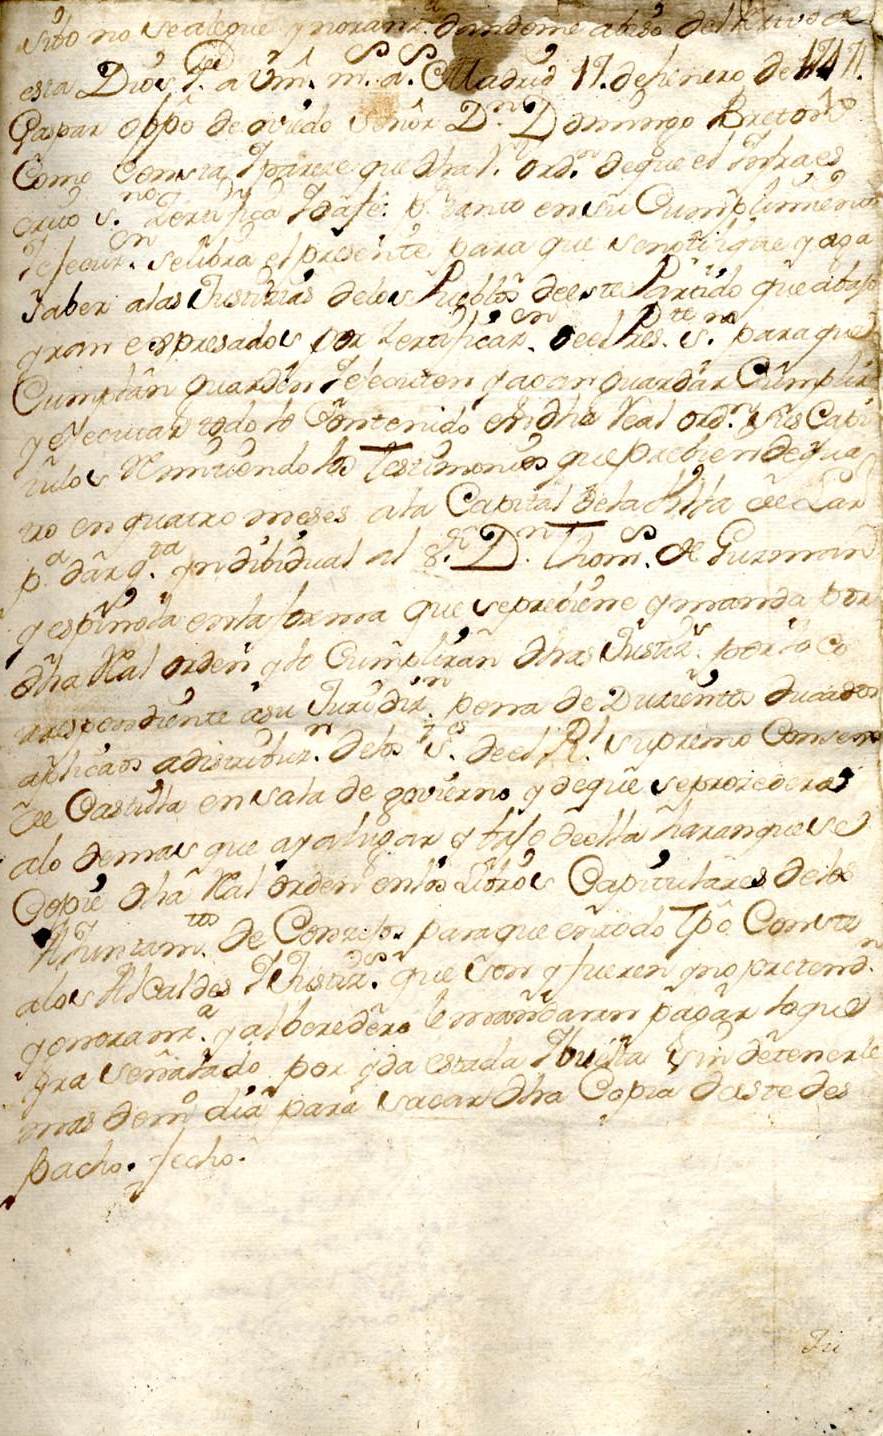 sito no se alegue ygnoranz.ª dandome abiso del Rezivo de
esta Dios g.e a Vm. m.s a.s Madrid 17. de henero de 1747.
Gaspar ôbpô de oviedo señor D.n Domingo Breton
Como Consta, Y pareze que dha rl. ord.n de que el Ynfraes
crito s.no Zertifica Y da fe. p.r tanto en su Cumplimiento
Y ejecuz.on se libra el presente para que se notifique y aga
saber alas Justizias delos Pueblos de este Partido que abajo
yran expresados por Zertificaz.on de el Pres.te s.no para que
Cumplan guarden Y ejecuten y agan guardar Cumplir
y ejecutar todo lo Contenido en dha Real ord.n y sus Capi
tulos Remitiendo los Testimonios que prebiene de qua
tro en quatro meses ala Capital dela Villa de
p.ª dar q.ta yndibidual al s.r D.n Thom.s de Guzman
y espinola en la forma que se prebiene y manda por
dha Real orden y lo Cumpliran dhas Justiz.s por lo Co
rrespondiente a su Juridiz.n pena de Duzientos ducados
aplicados a distribuz.n delos s.res de el R.l supremo Consejo
de Castilla en sala de govierno y de que se prozedera
alo demas que aya lugar y bajo de ella haran que se
Copie dha Real orden en los Libros Capitulares delos
Ayuntam.tos de Conzejos para que en todo Tpô Conste
alos Alcaldes Y Justiz.s que son y fueren y no pretend.n
ygnoranz.ª y al beredero le mandaran pagar lo que
yra señalado por yda estada Y buelta sin detenerle
mas de m.o dia para sacar dha Copia de este des
pacho. fecho.